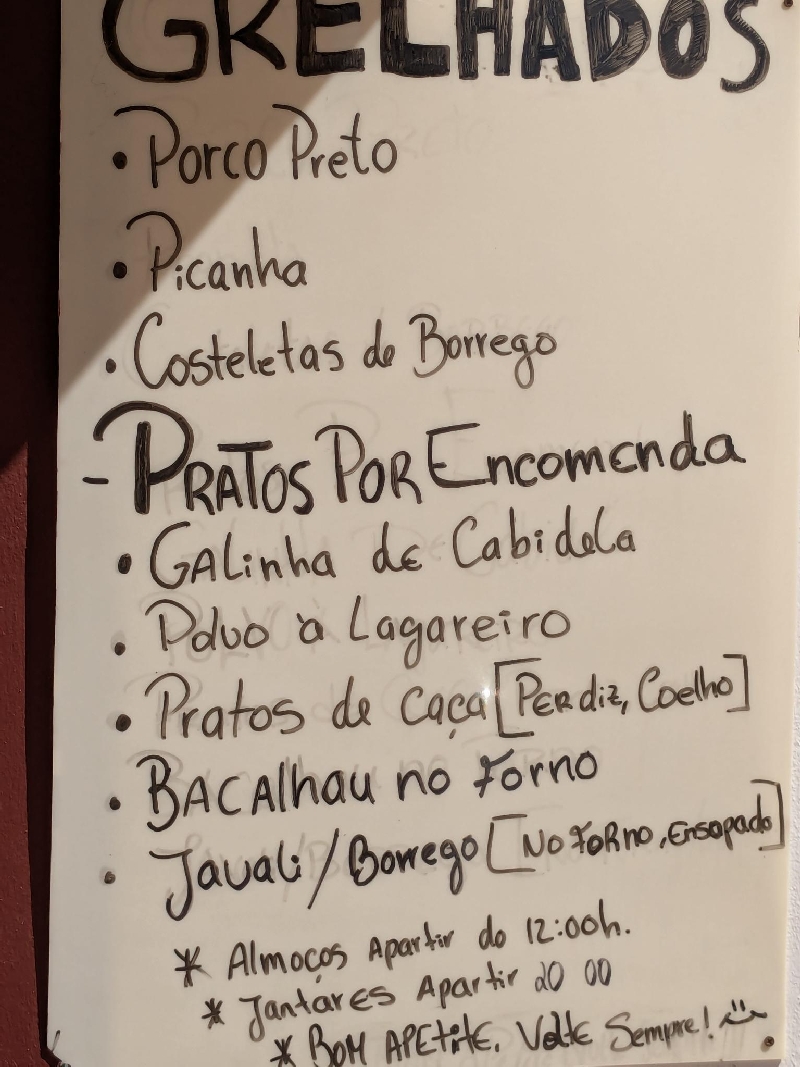 GRELHADOS
• Porco Preto
• Picanha
• Costeletas de Borrego
- PRATOS POR Encomenda
• GALinha de Cabidela
• Polvo à Lagareiro
• Pratos de caça [PERdiz, Coelho]
• BACAlhau no Forno
• Javali/Borrego [NO FORNO, Ensopado]
* Almoços Apartir do 12:00h.
* Jantares Apartir 20 00
* BOM APEtite. Volte Sempre!